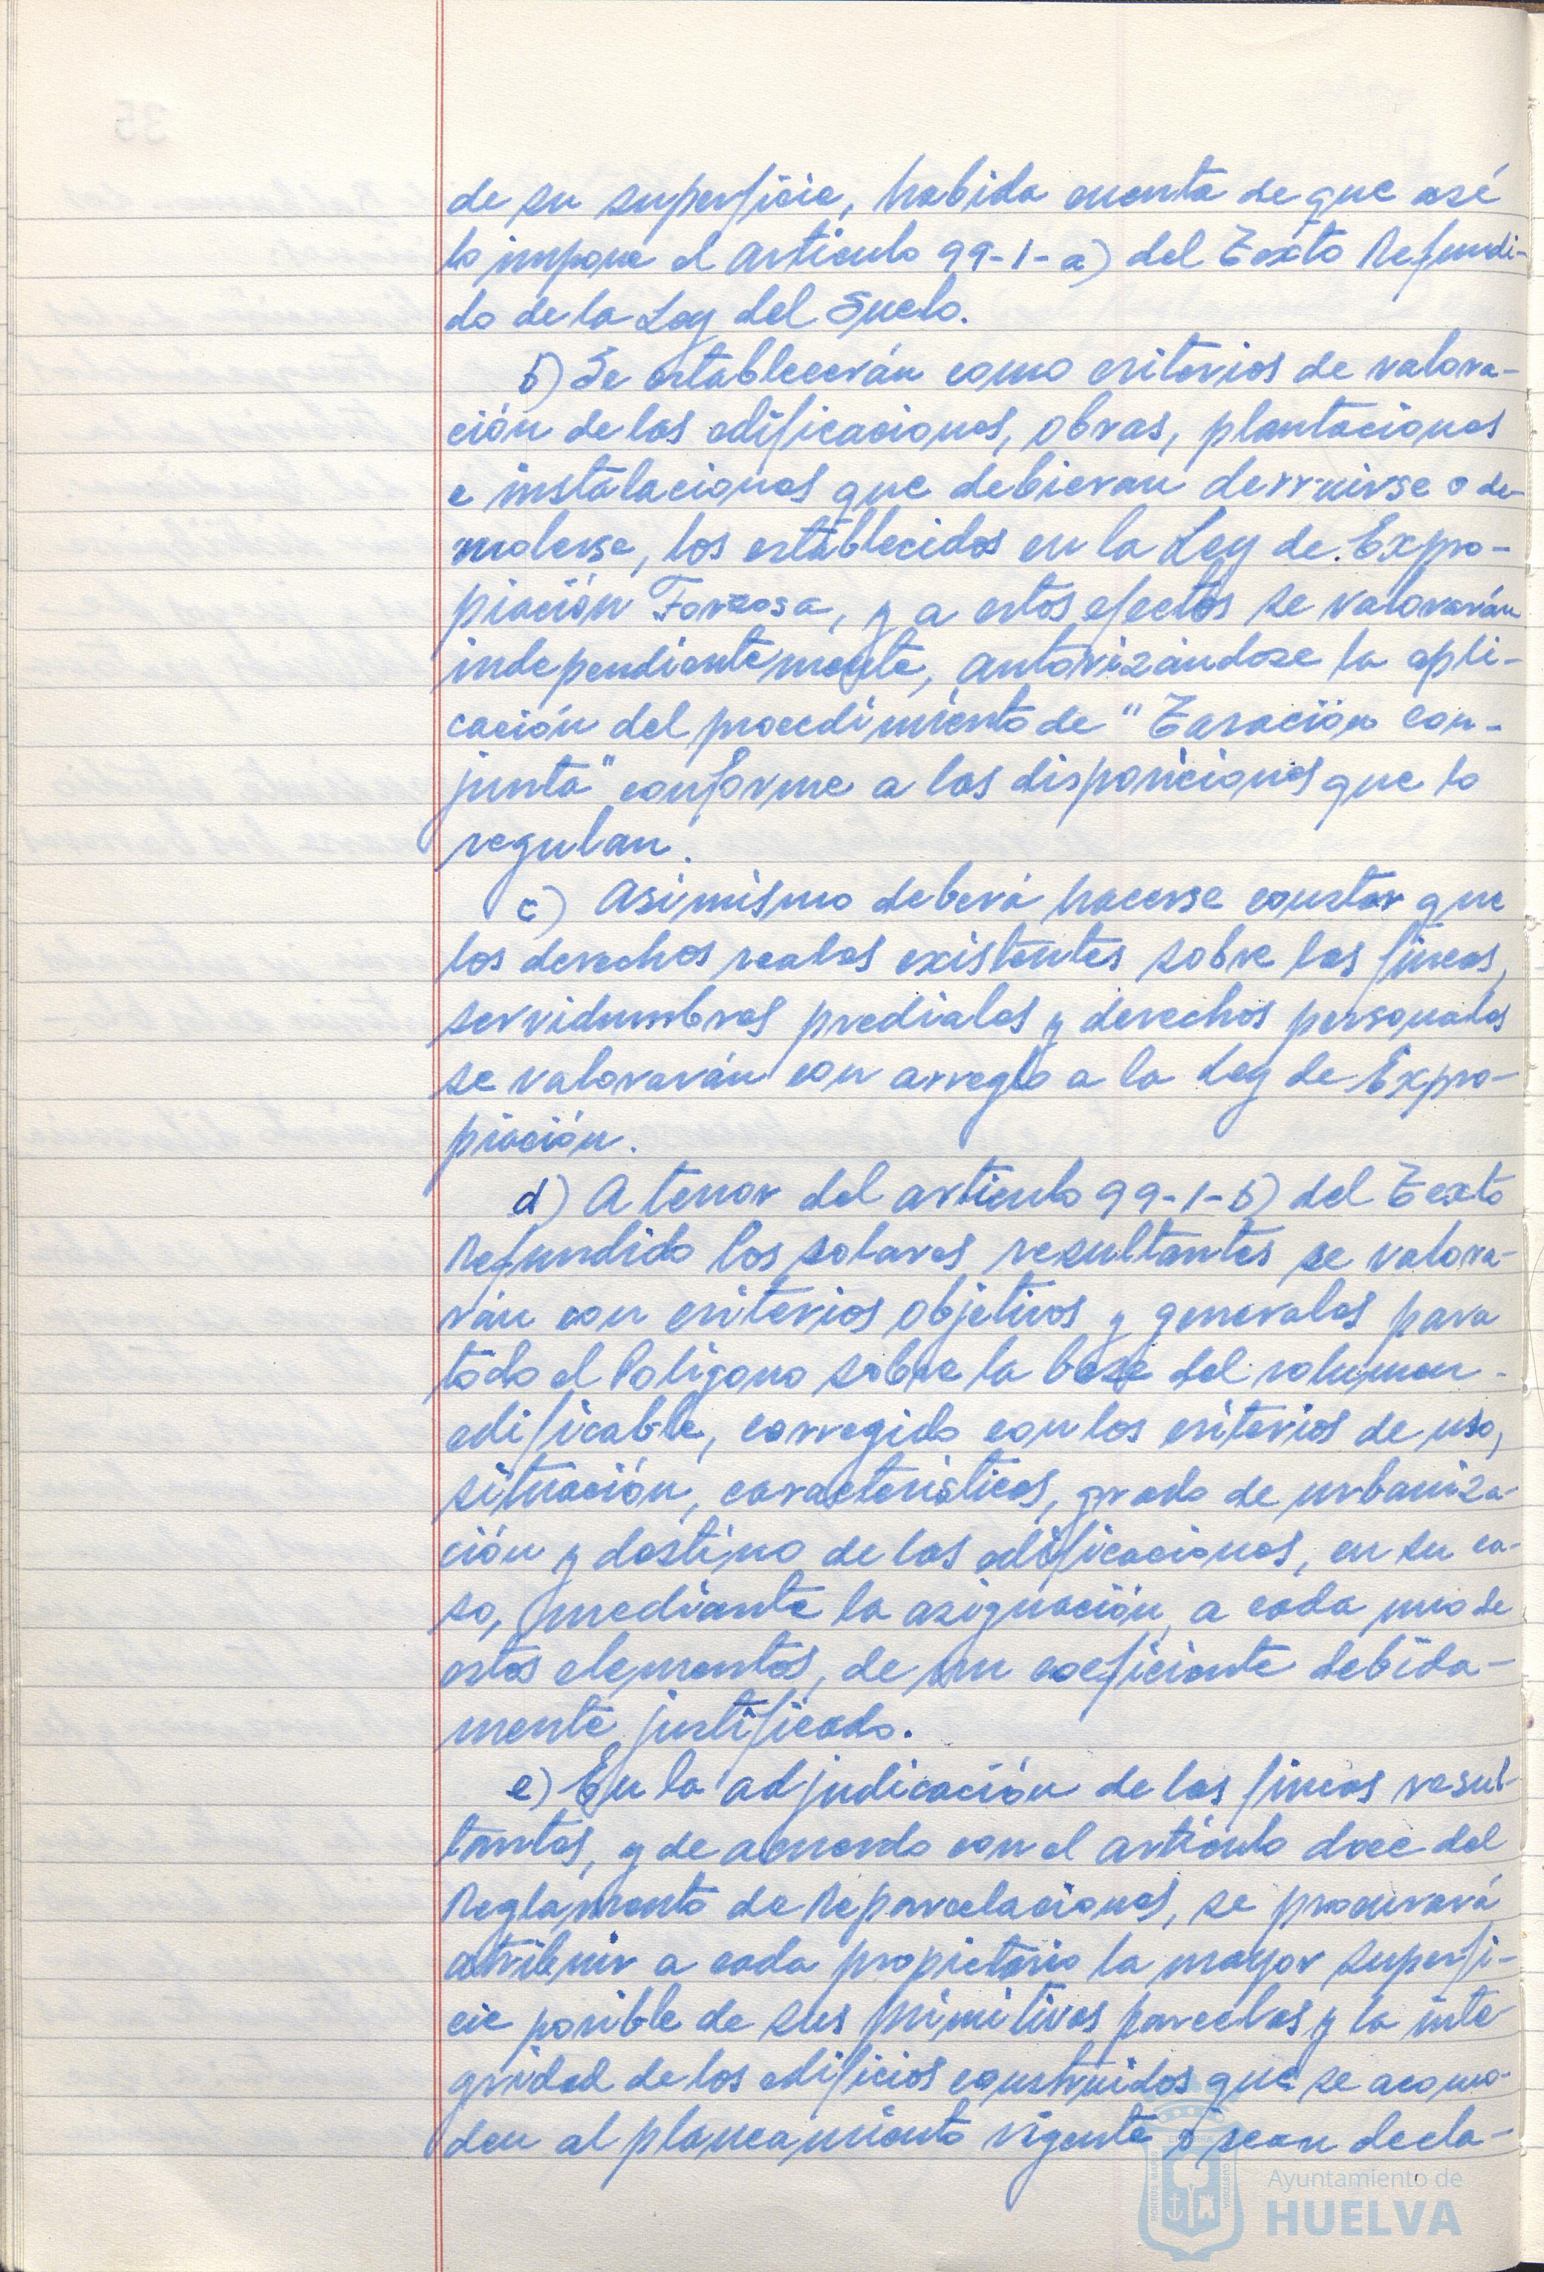 de su superficie, habida cuenta de que asé
lo impone el artículo 99-1-a) del Texto Refundi-
do de la Ley del Suelo.
b) Se establecerán como criterios de valora-
ción de las edificaciones, obras, plantaciones
e instalaciones que debieran derruirse o de-
molerse, los establecidos en la Ley de Expro-
piación Forzosa, y a estos efectos se valorarán
independientemente, autorizándose la apli-
cación del procedimiento de "Tasación con-
junta" conforme a las disposiciones que lo
regulan.
c) Asimismo deberá hacerse constar que
los derechos reales existentes sobre las fincas,
servidumbres prediales y derechos personales
se valorarán con arreglo a la Ley de Expro-
piación.
d) A tenor del artículo 99-1-b) del Texto
Refundido los solares resultantes se valora-
rán con criterios objetivos y generales para
todo el Polígono sobre la base del volumen
edificable, corregido con los criterios de uso,
situación, características, grado de urbaniza-
ción y destino de las edificaciones, en su ca-
so, mediante la asignación, a cada uno de
estos elementos, de un coeficiente debida-
mente justificado.
e) En la adjudicación de las fincas resul-
tantes, y de acuerdo con el artículo doce del
Reglamento de Reparcelaciones, se procurará
atribuir a cada propietario la mayor superfi-
cie posible de sus primitivas parcelas y la inte-
gridad de los edificios construidos que se acomo-
den al planeamiento vigente o sean decla-
Ayuntamiento de
HUELVA